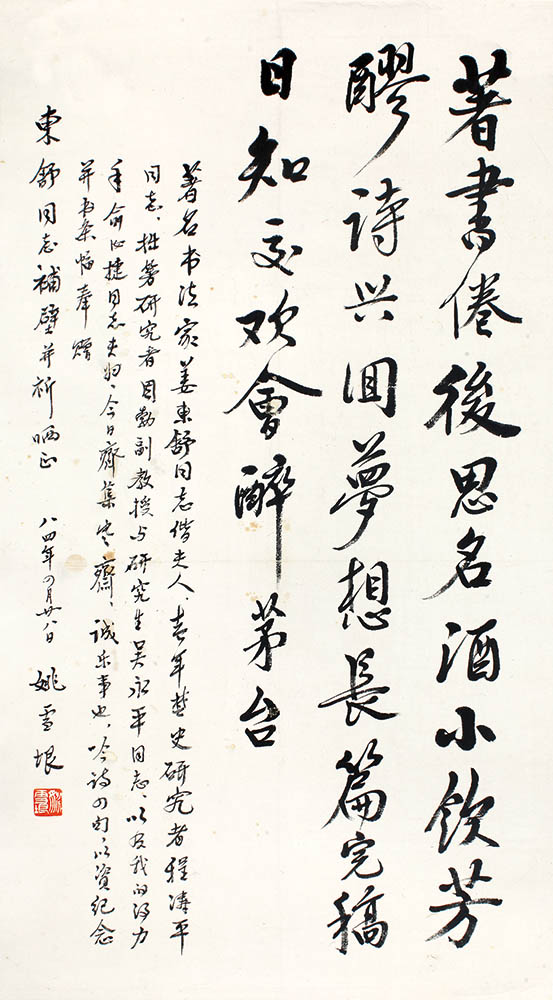 著書倦後思名酒小飲芳
醪詩兴回夢想長篇完稿
日知交欢會醉茅台
著名书法家姜东舒同志偕夫人、青年楚史研究者程涛平
同志、拙劳研究者周勃副教授与研究生吴永平同志、以及我的得力
手俞汝捷同志夫妇、今日齐集寒斋、诚乐事也、吟诗四句、以资纪念
并书条幅奉赠
東舒同志補壁并祈哂正
八四年四月廿八日 姚雪垠